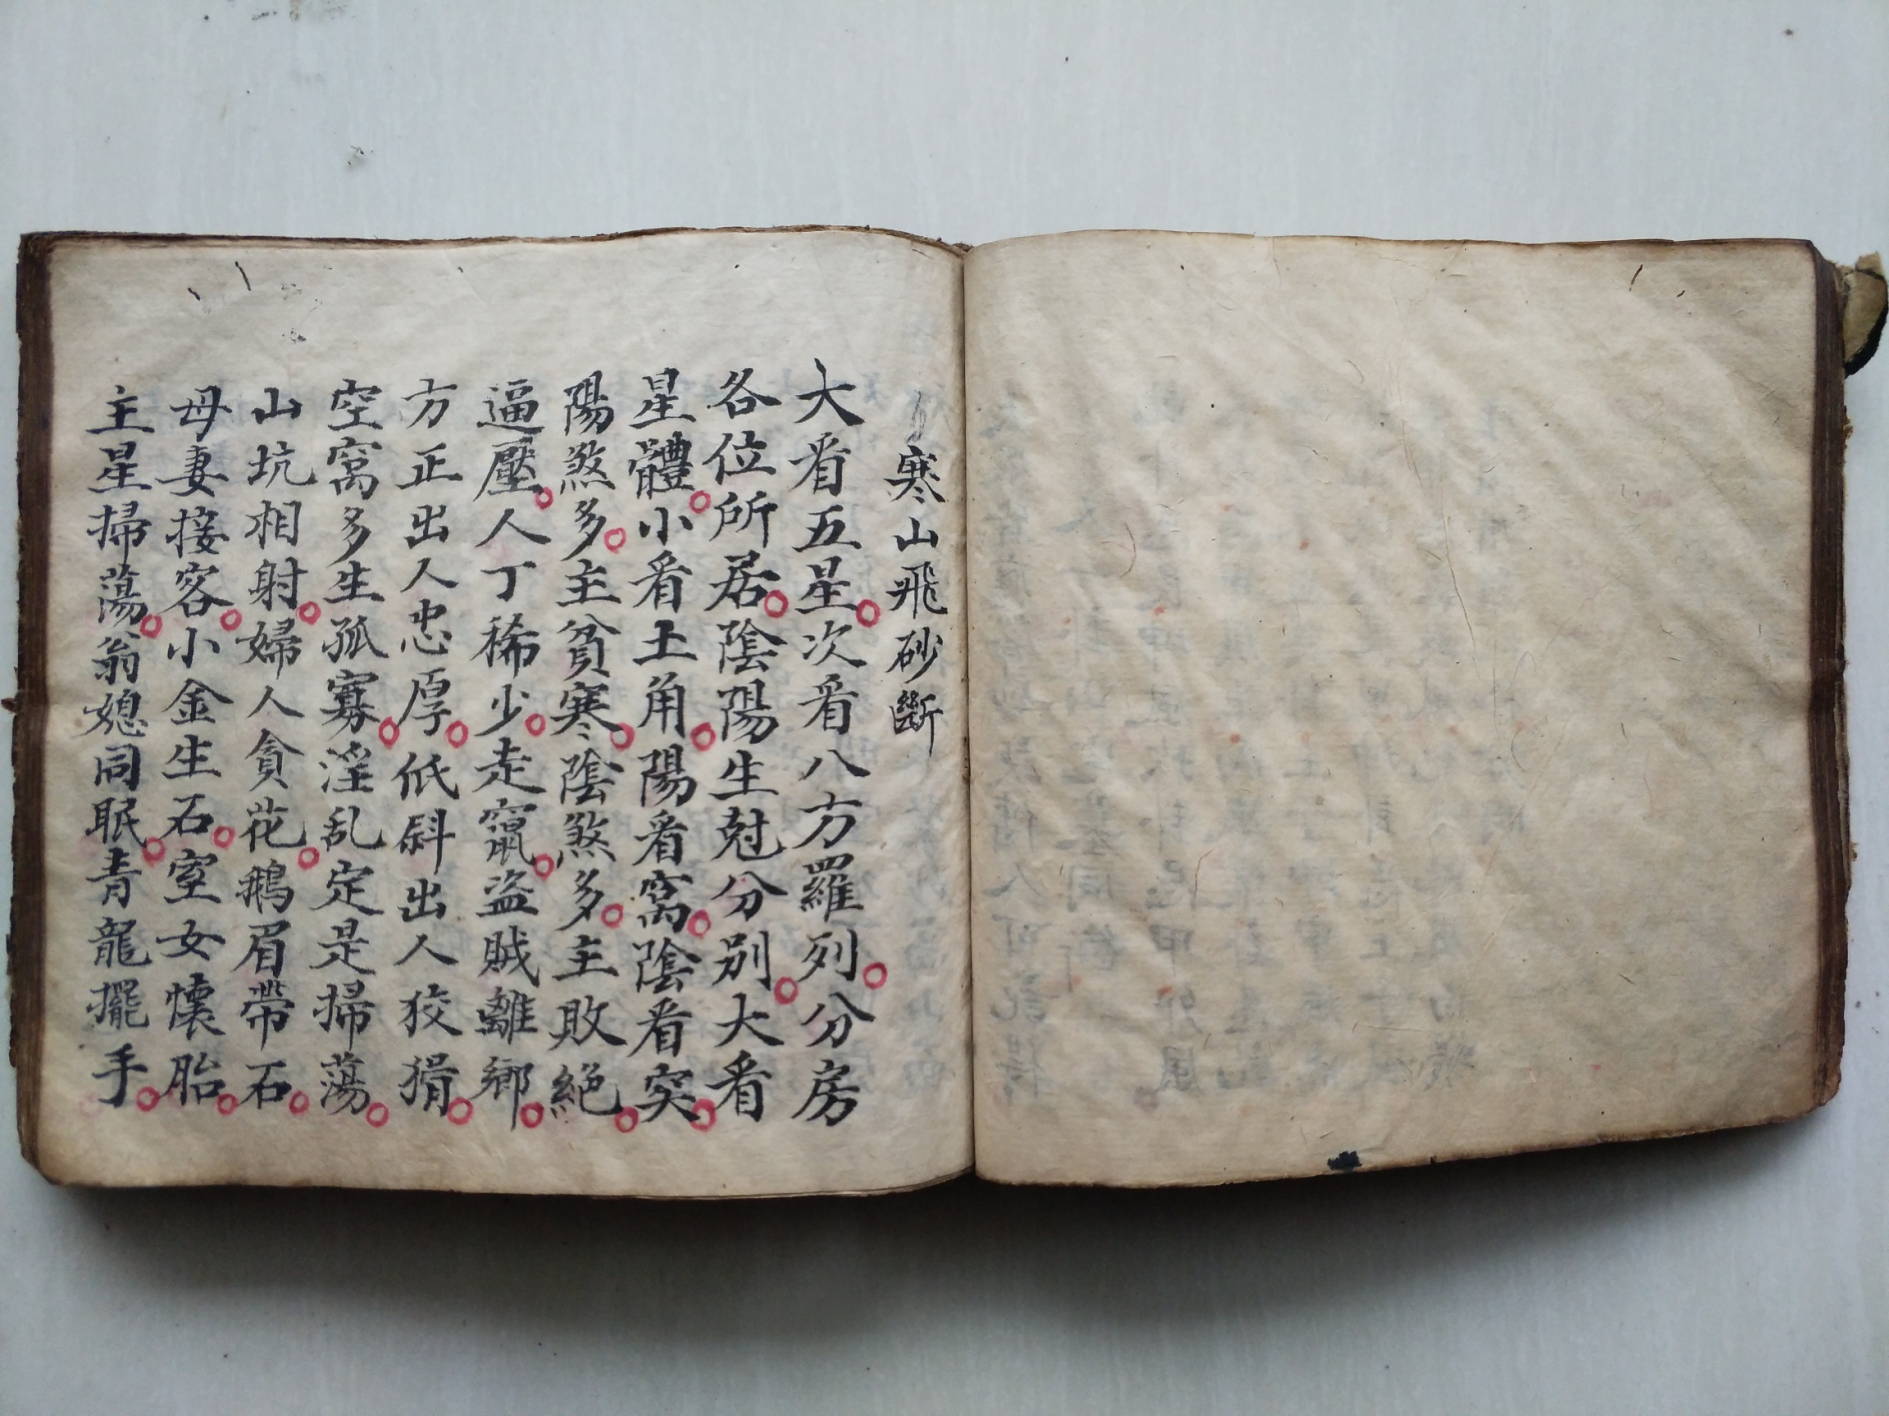 寒山飛砂斷
大看五星。次看八方羅列。分房
各位所居。陰陽生尅分別。大看
星體。小看土角。陽看窩。陰看突。
陽煞多。主貧寒。陰煞多。主敗絕。
逼壓。人丁稀少。走竄。盜賊離鄉。
方正出人忠厚。低斜出人狡猾。
空窩多生孤寡。淫乱定是掃蕩。
山坑相射。婦人貪花。鵝眉帶石。
母妻接客。小金生石。室女懷胎。
主星掃蕩。翁媳同眠。青龍擺手。